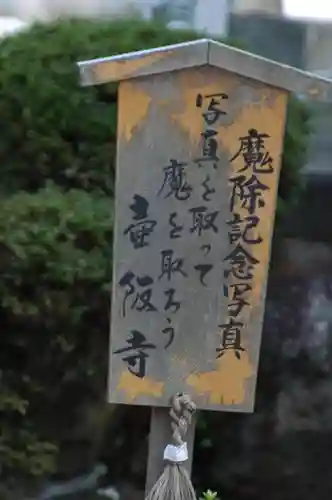 魔除記念写真
写真を取って
魔を取ろう
壷阪寺